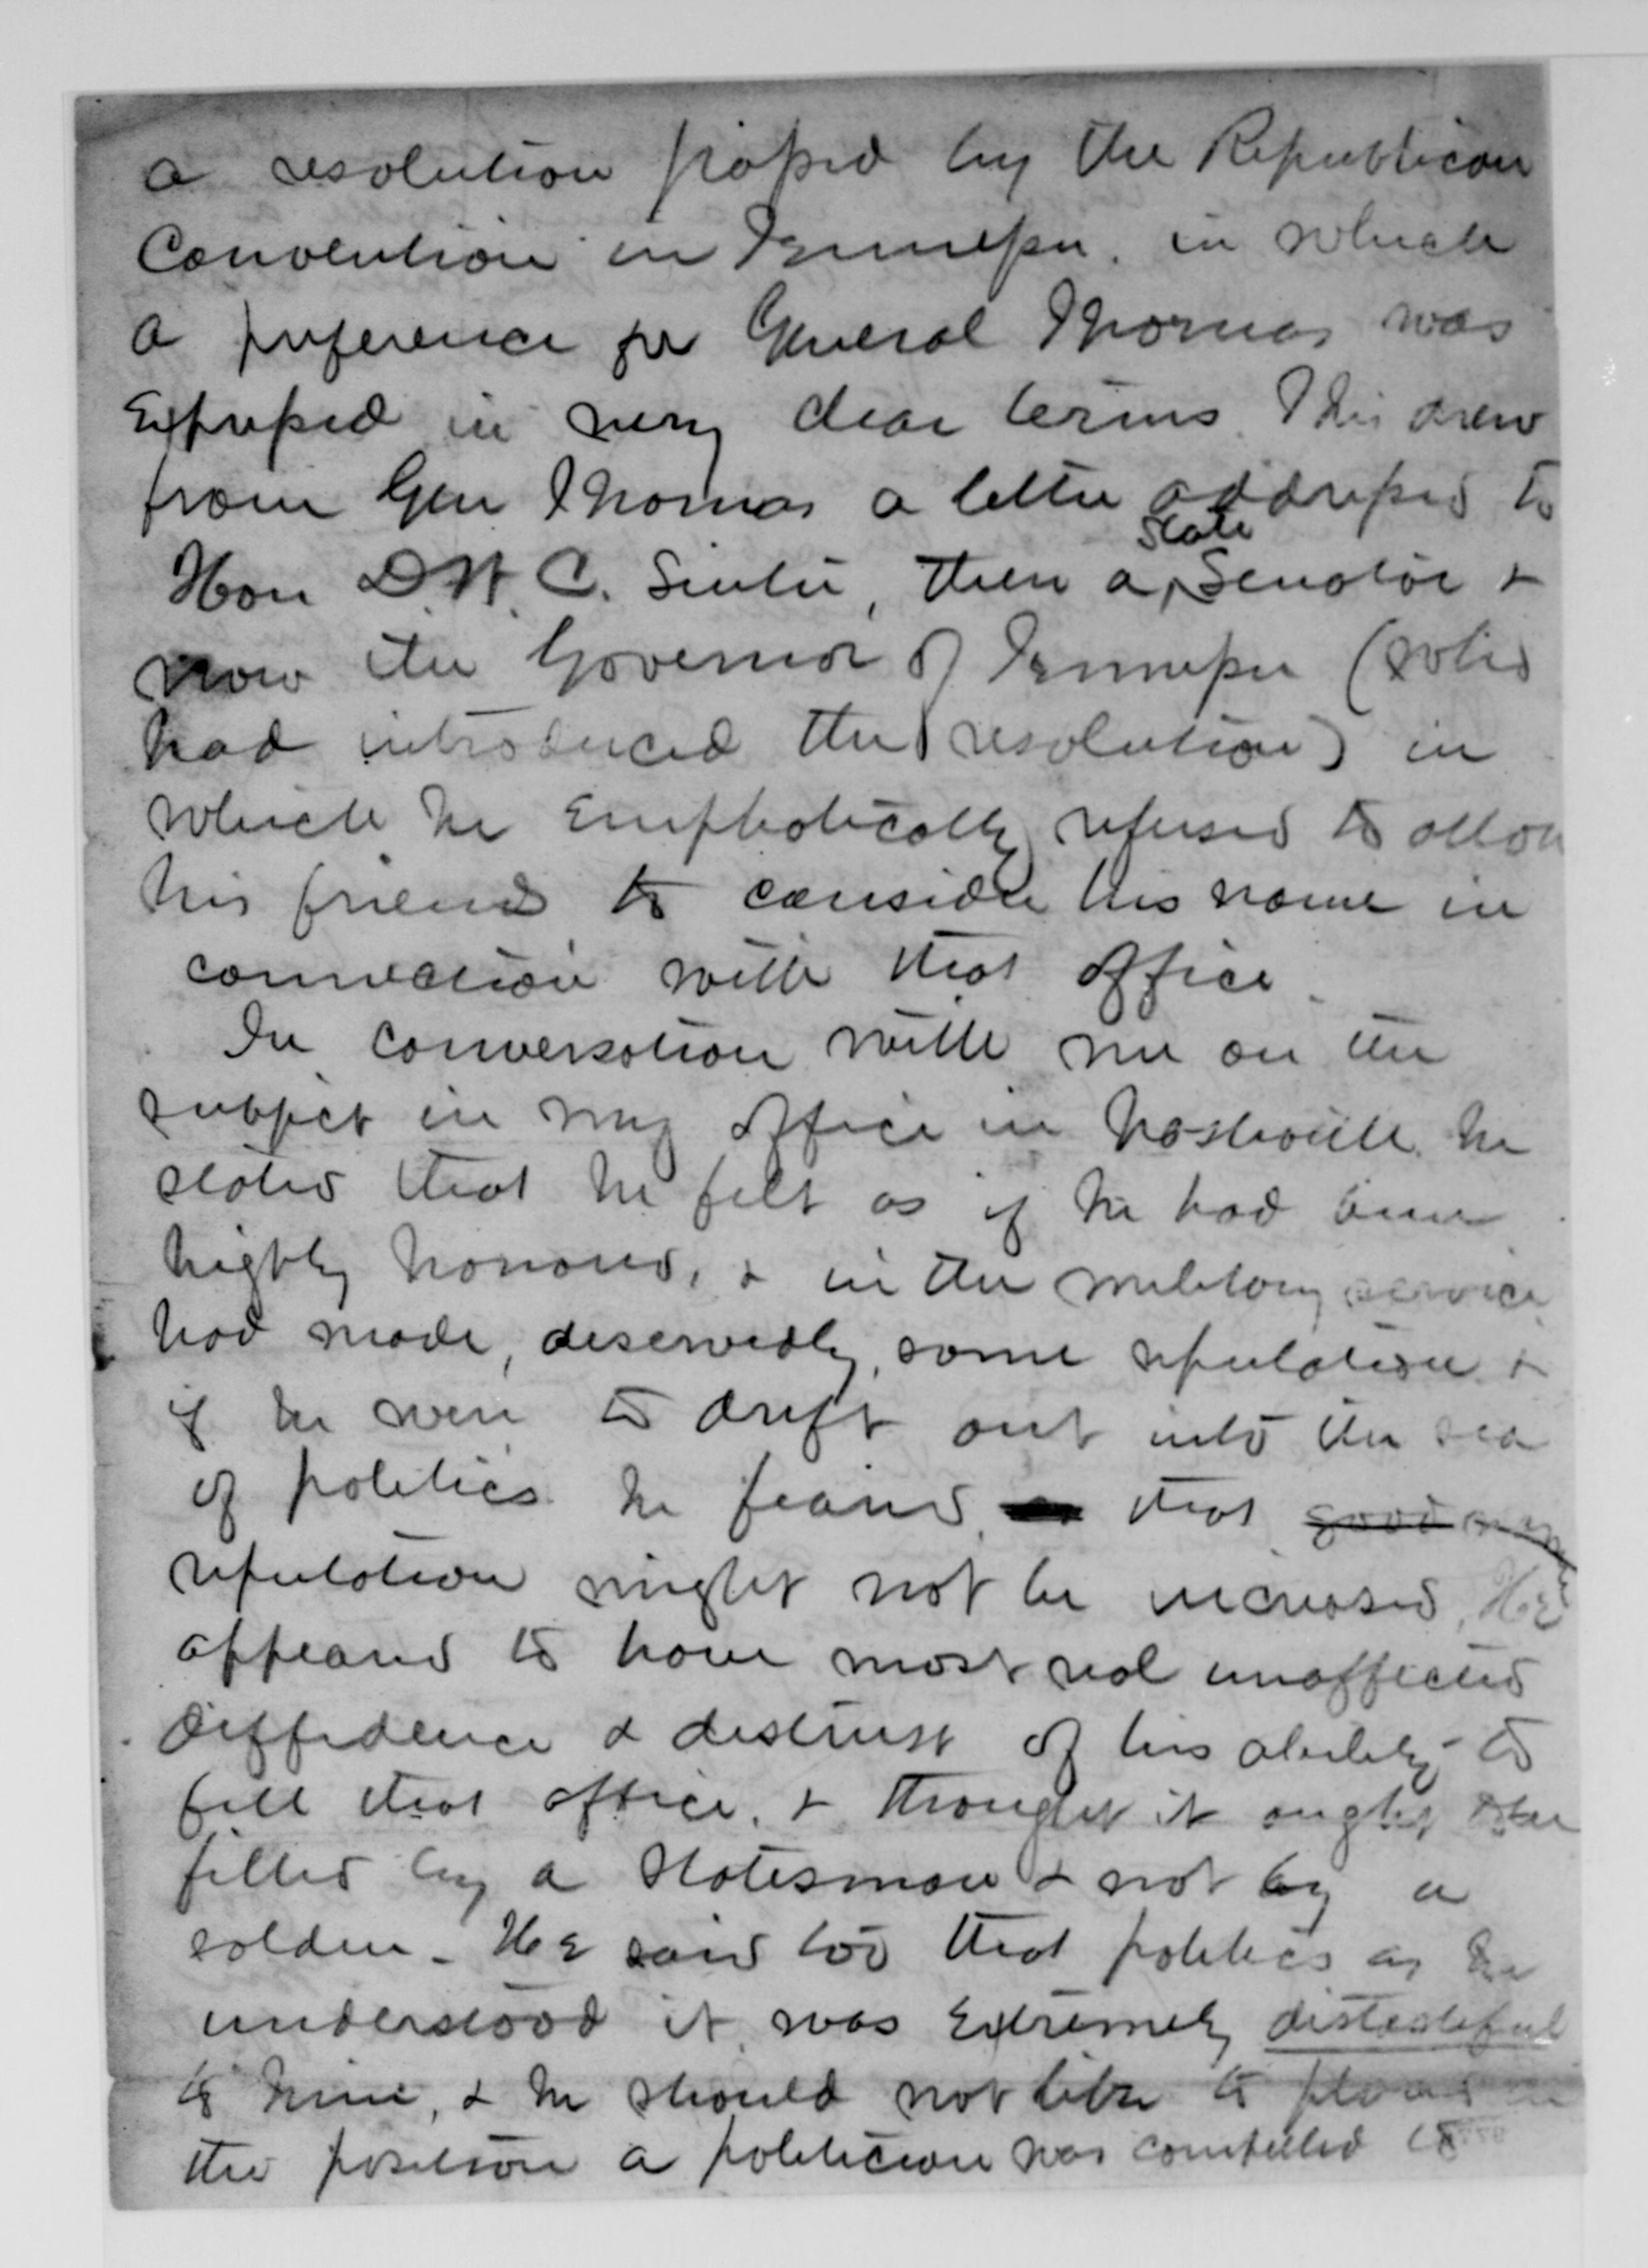 a resolution passed by the Republican
Convention in Tennessee. in which
a preference for General Thomas was
Expressed in very clear terms. This drew
from Gen Thomas a letter addressed to
Hon D. W. C. Senter, then a State Senator &
now the Governor of Tennessee (who
had introduced the resolution) in
which he Emphatically refused to allow
his friends to consider his name in
connection with that office.
In conversation with me on the
subject in my office in Nashville. he
stated that he felt as if he had been
highly honored, & in the military service
had made, deservedly, some reputation &
if he were to drift out into the sea
of politics he feared that good
reputation might not be increased. He
appeared to have most real unaffected
diffidence & distrust of his ability to
fill that office. & thought it ought to be
filled by a Statesman & not by a
soldier - He said too that politics as he
understood it was Extremely distasteful
to him, & he should not like to placed in
the position a politician was compelled to